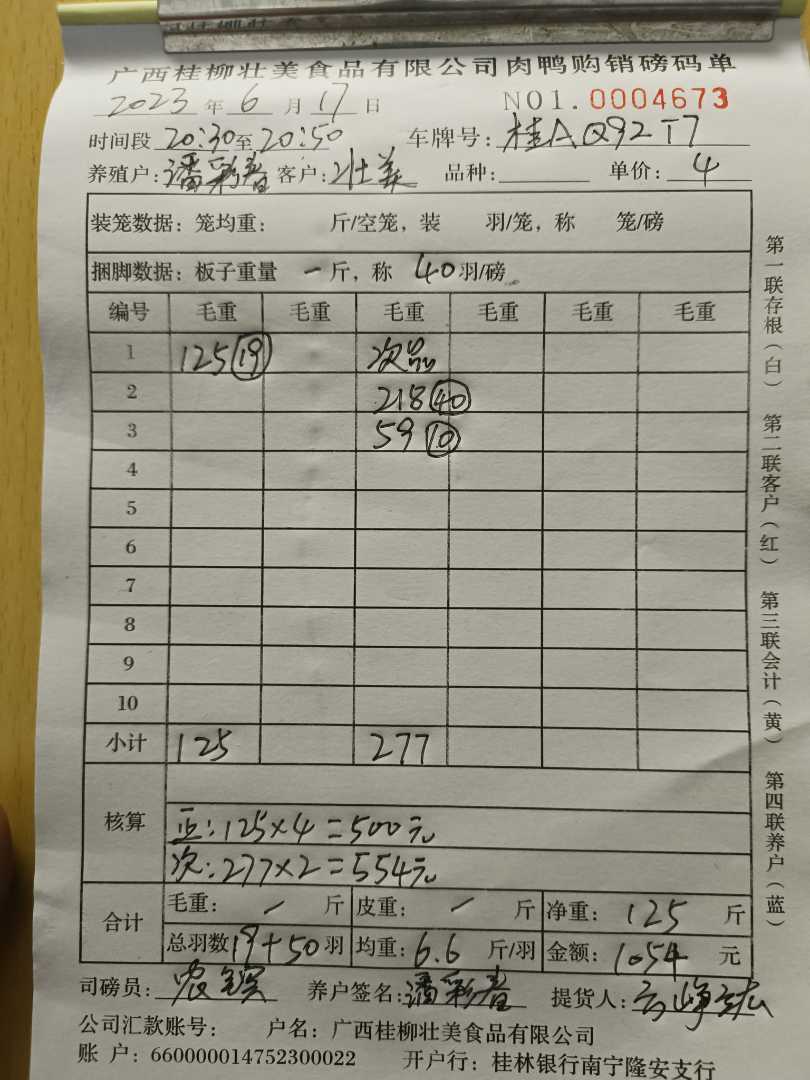 广西桂柳壮美食品有限公司肉鸭购销磅码单
2023 年 6 月 17 日 NO1.0004673
时间段 20:30 至 20:50 车牌号: 桂A Q92T7
养殖户: 潘彩春 客户: 壮美 品种: 单价: 4
装笼数据: 笼均重: 斤/空笼, 装 羽/笼, 称 笼/磅
捆脚数据: 板子重量 一 斤, 称 40 羽/磅
编号 毛重 毛重 毛重 毛重 毛重 毛重
1 125 19 次品
2 218 40
3 59 10
4
5
6
7
8
9
10
小计 125 277
核算
正: 125×4=500元
次: 277×2=554元
合计
毛重: / 斤 皮重: / 斤 净重: 125 斤
总羽数 19+50 羽 均重: 6.6 斤/羽 金额: 1054 元
司磅员: 农 养户签名: 潘彩春 提货人:
公司汇款账号: 户名: 广西桂柳壮美食品有限公司
账 户: 660000014752300022 开户行: 桂林银行南宁隆安支行
第一联存根(白) 第二联客户(红) 第三联会计(黄) 第四联养户(蓝)